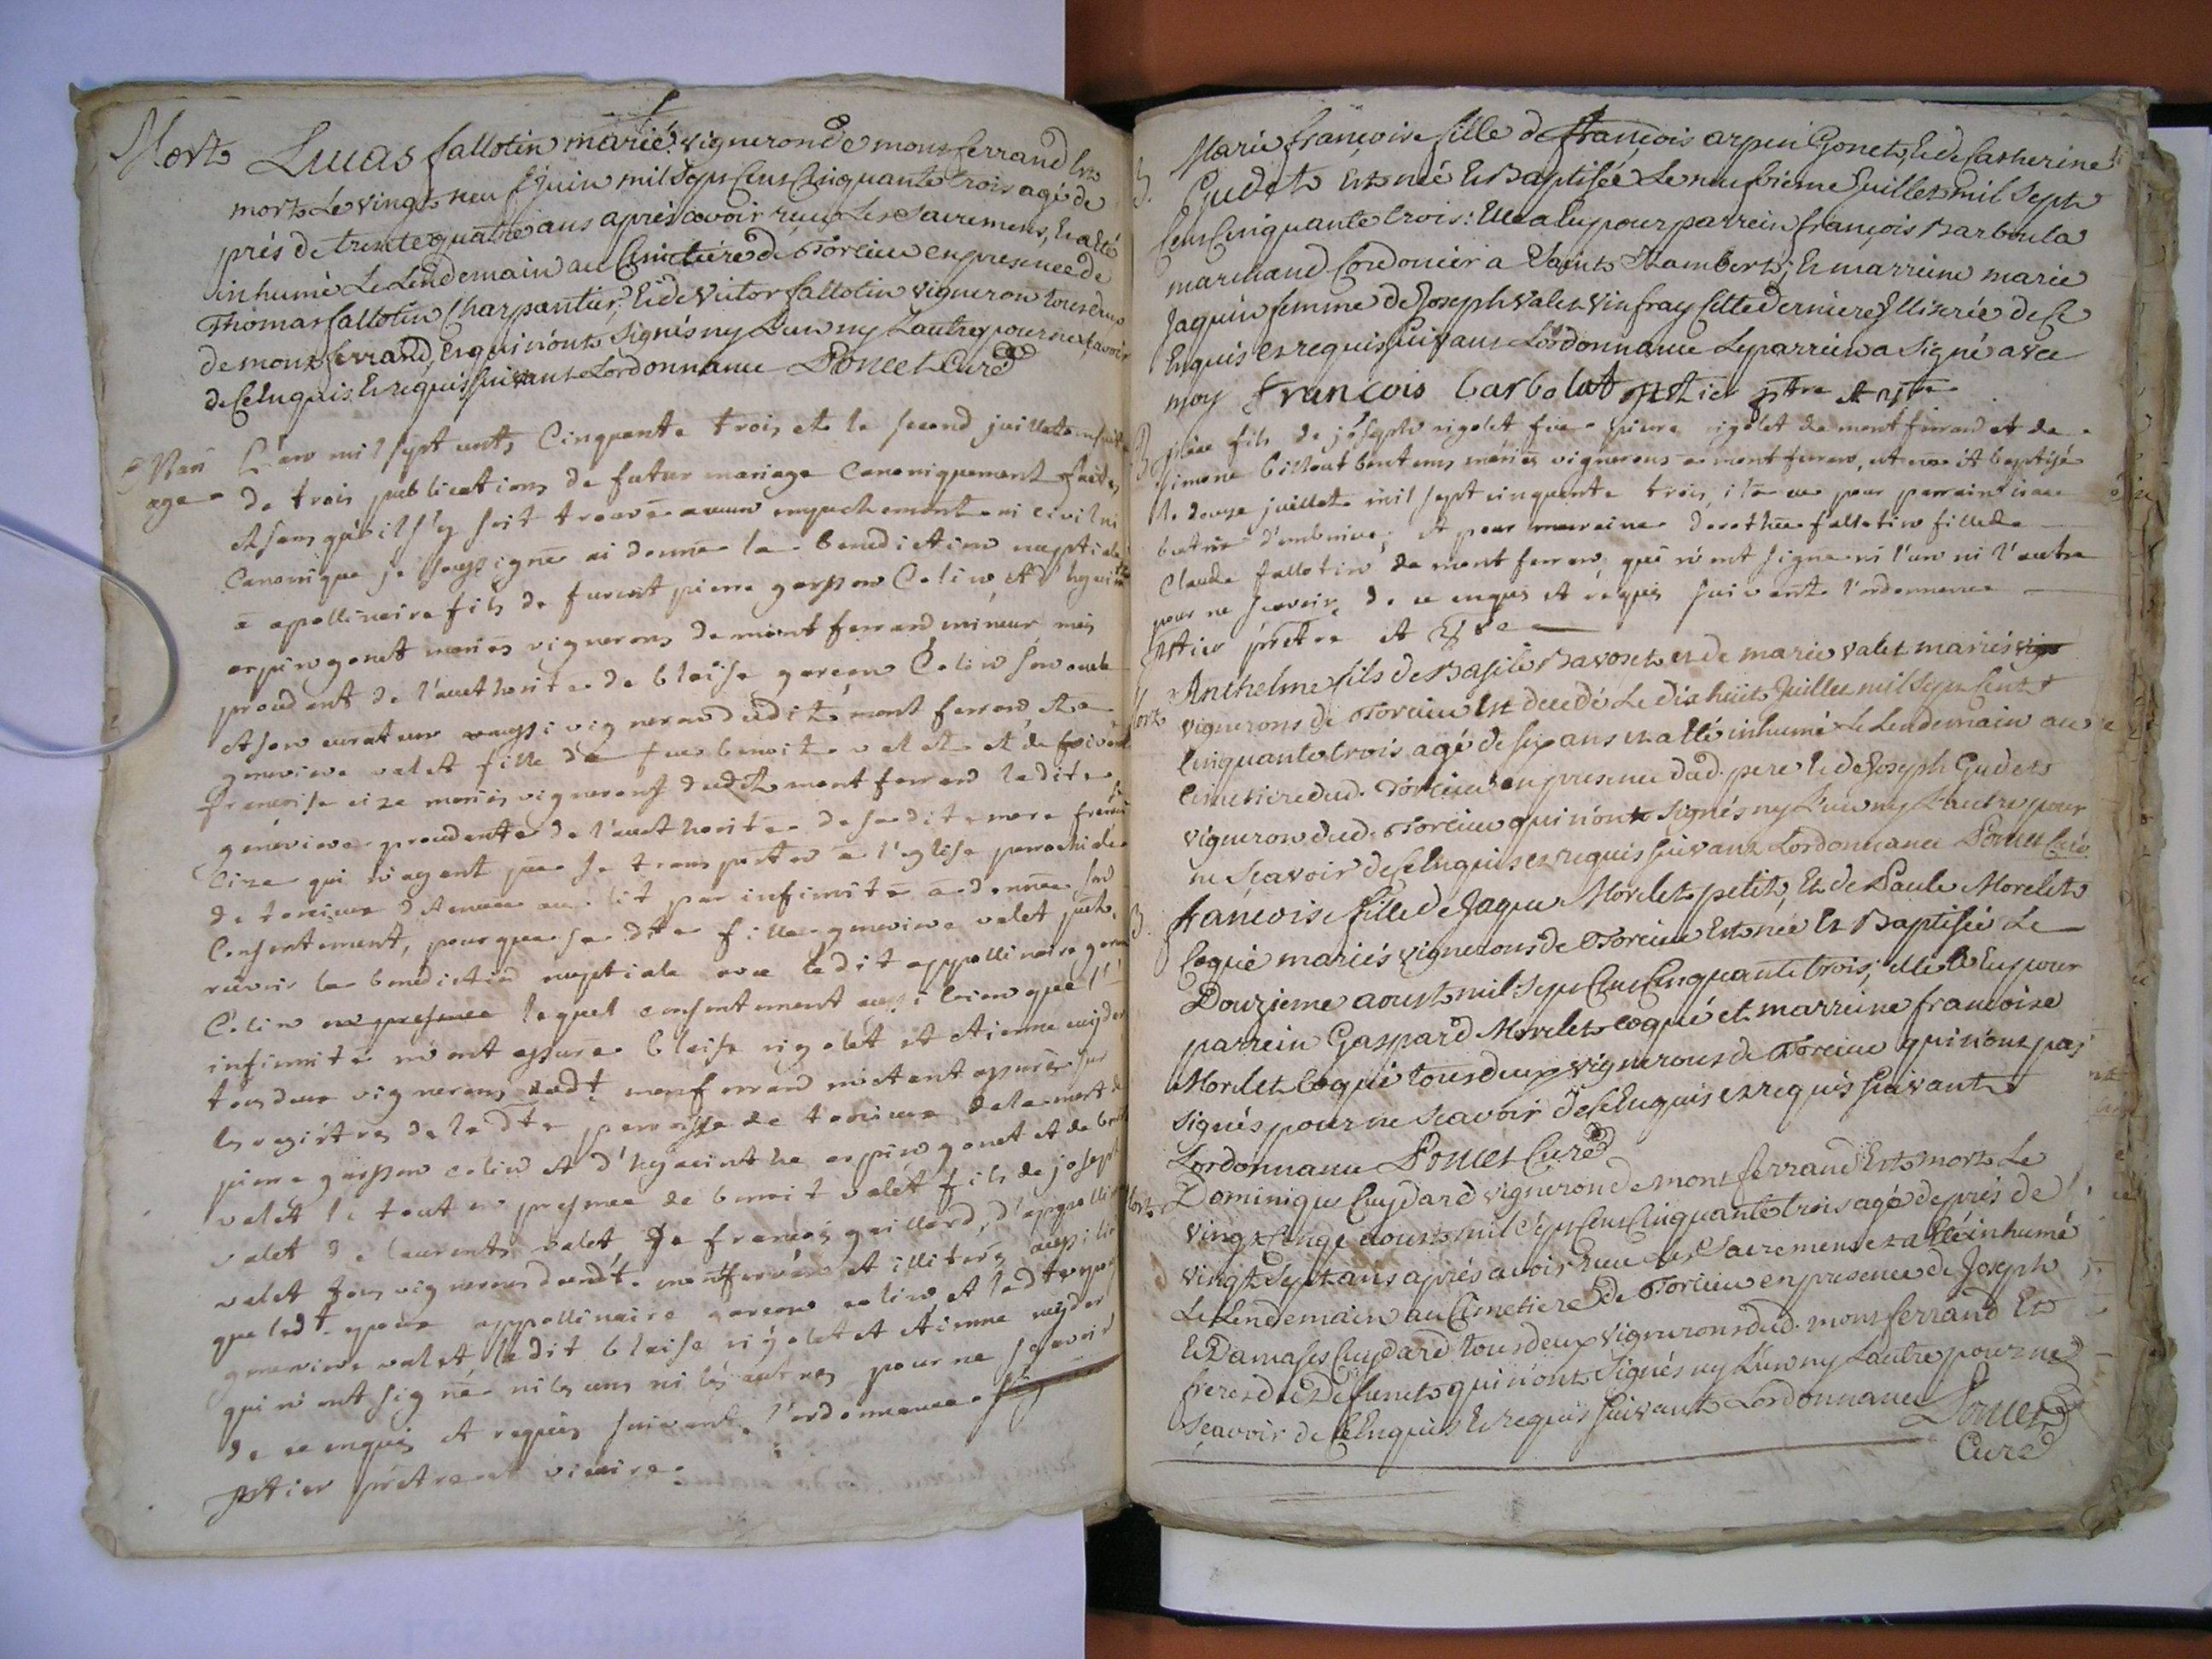 Mort Lucas fallotin marié vigneron de montferrand Est
mort Le vingt neuf Juin mil Sept Cens Cinquante trois agé de
près de trente quatre ans après avoir reçu Les Sacremens, Et a eté
inhumé Le Lendemain au Cimetière de Torcieu en presence de
Thomas fallotin Charpantier, Et de Victor fallotin vigneron tous deux
de montferrand, Et qui n'ont Signés ny L'un ny L'autre pour ne Sçavoir
de Ce Enquis Et requis Suivant Lordonnance Poncet Curé
Mari L'an mil sept cents Cinquante trois et le second juillet ensuite
age de trois publications de futur mariage Canoniquement faites
et sans qu'il s'y soit trouvé aucun empechement ni civil ni
Canonique je soussigné ai donné la benediction nuptiale
a apollinaire fils de furent pierre garçon Colin, et d'hyacinthe
arpin gonet mariés vignerons de montferrand mineur mais
procedent de l'authorité de blaise garçon Colin son oncle
et son curateur aussi vigneron dudit montferrand, et a
genevieve valet fille de feu benoit valet et de
françoise cize mariés vignerons dudit montferrand ladite
genevieve procedente de l'authorité de sa dite mere françoise
Cize qui n'ayant pu se transporter a l'eglise parochiale
de torcieu detenue au lit par infirmité a donné son
Consentement, pour que sa dte fille genevieve valet put
reçevoir la benediction nuptiale avec ledit appollinaire garçon
Colin en presence lequel consentement aussi bien que l'
infirmité m'ont assuré blaise rigolet et etienne cuydard
tous deux vignerons dudt monferrand m'etant assuré sur
les registres de la dte parroisse de torcieu de la mort de
pierre garçon colin et d'hyacinthe arpin gonet et de benoit
valet le tout en presence de benoit valet fils de joseph
valet de laurent valet De françois gaillard, d'appollinaire
valet tous vignerons dudt montferrand et illiterés aussi bien
que ledt epoux appollinaire garçon colin et ladte epouse
genevieve valet, ledit blaise rigolet et etienne cuydard
qui n'ont signé ni les uns ni les autres pour ne sçavoir
de ce enquis et requis suivant l'ordonnance
astier prêtre et vicaire
B. Marie françoise fille de françois arpin Gonet, Et de Catherine
Gudet Est née Et Baptisée Le neufvieme Juillet mil Sept
Cens Cinquante trois: Elle a Eu pour parrein françois Barboula
marchand Cordonier a Saint Rambert; Et marreine marie
Jaquin femme de Joseph Valet Vinfray Cette derniere Illiterée de Ce
Enquis et requis Suivant Lordonnance Le parrein a Signé avec
moy françois barbolat astier ptre et vre
B. fils de joseph rigolet feu pierre rigolet de montferrand et de
simone mariés vignerons a montferran, est né et baptisé
le douze juillet mil sept cinquante trois, il a eu pour parrain
d'ambrieu; et pour marraine dorothée fallotin fille de
Claude fallotin de montferran, qui n'ont signé ni l'un ni l'autre
pour ne sçavoir de ce enquis et requis suivant l'ordonnance
astier prêtre et vre
Mort Anthelme fils de Basile Bavoset et de marie valet mariés vign
vignerons de Torcieu Est decedé Le dix huit Juillet mil Sept Cent
Cinquante trois agé de six ans et a eté inhumé Le Lendemain au
Cimetiere dud. Torcieu en presence dud. pere Et de Joseph Gudet
vigneron dud. Torcieu qui n'ont Signés ny L'un ny L'autre pour
ne Sçavoir de Ce Enquis et requis Suivant Lordonnance Poncet Curé
B. françoise fille de Jaque Morelet petit, Et de Paule Morelet
Coqué mariés vignerons de Torcieu Est née Et Baptisée Le
Douzieme aoust mil Sept Cens Cinquante trois; elle a Eu pour
parrein Gaspard Morelet coqué et marreine françoise
Morelet Coqué tous deux vignerons de Torcieu qui n'ont pas
Signés pour ne Scavoir de Ce Enquis et requis Suivant
Lordonnance Poncet Curé
Mort Dominique Cuydard vigneron de montferrand Est mort Le
vingt aoust mil Sept Cens Cinquante trois agé de près de
vingt Sept ans après avoir reçu Les Sacremens et a Eté inhumé
Le Lendemain au Cimetiere de Torcieu en presence de Joseph
Et Damases Cuydard tous deux vignerons dud. montferrand Et
freres du Defunct qui n'ont Signés ny L'un ny L'autre pour ne
Sçavoir de Ce Enquis Et requis Suivant Lordonnance Poncet
Curé